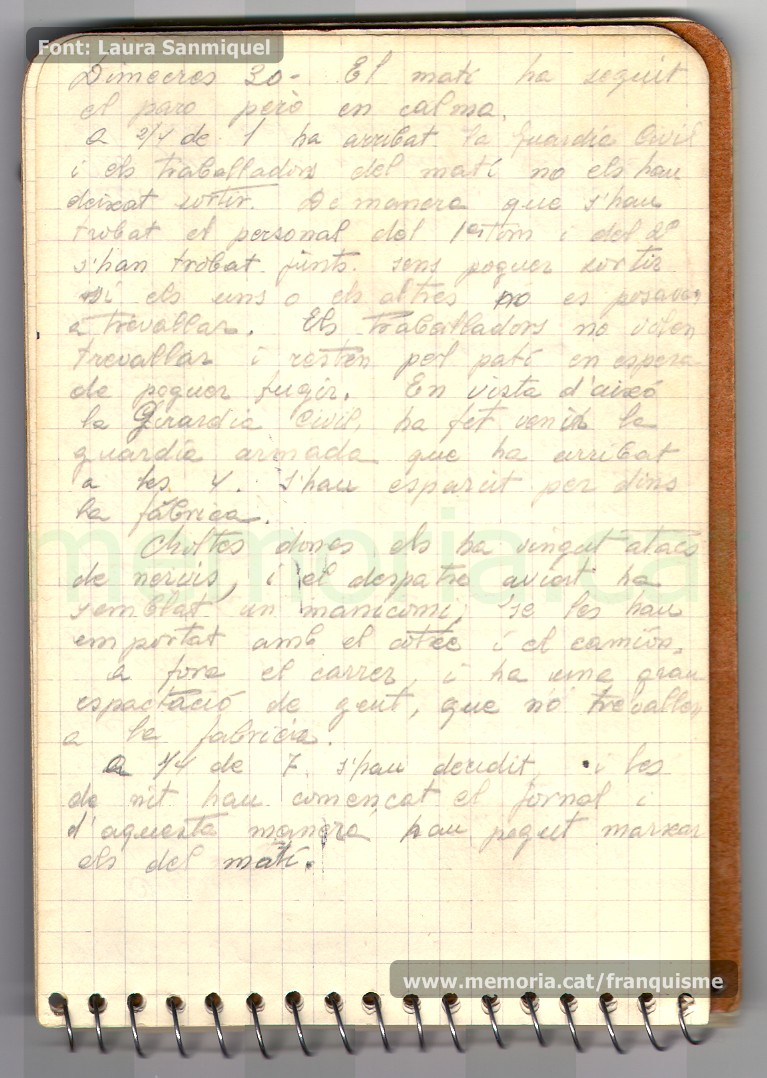 Font: Laura Sanmiquel
Dimecres 30 - El matí ha seguit
el paro però en calma.
A 2/4 de 1 ha arribat la Guardia Civil
i els traballadors del matí no els han
deixat sortir. De manera que s'han
trobat el personal del 1er torn i del 2º
s'han trobat junts. sens poguer sortir
si els uns o els altres no es posavan
a trevallar. Els traballadors no volen
trevallar i resten pel patí en espera
de poguer fugir. En vista d'aixó
la Guardia Civil, ha fet venir la
guardia armada que ha arribat
a les 4. S'han esparcit per dins
la fabrica.
Moltes dones els ha vingut atacs
de nervis, i el despatx aviat ha
semblat un manicomi, se les han
emportat amb el cotxe i el camión.
a fora el carrer, i ha una gran
espactació de gent, que no trevallen
a la fabrica.
A 1/4 de 7 s'han decidit, i les
de nit han començat el jornal i
d'aquesta manera han pogut marxar
els del matí.
memoria.cat
www.memoria.cat/franquisme